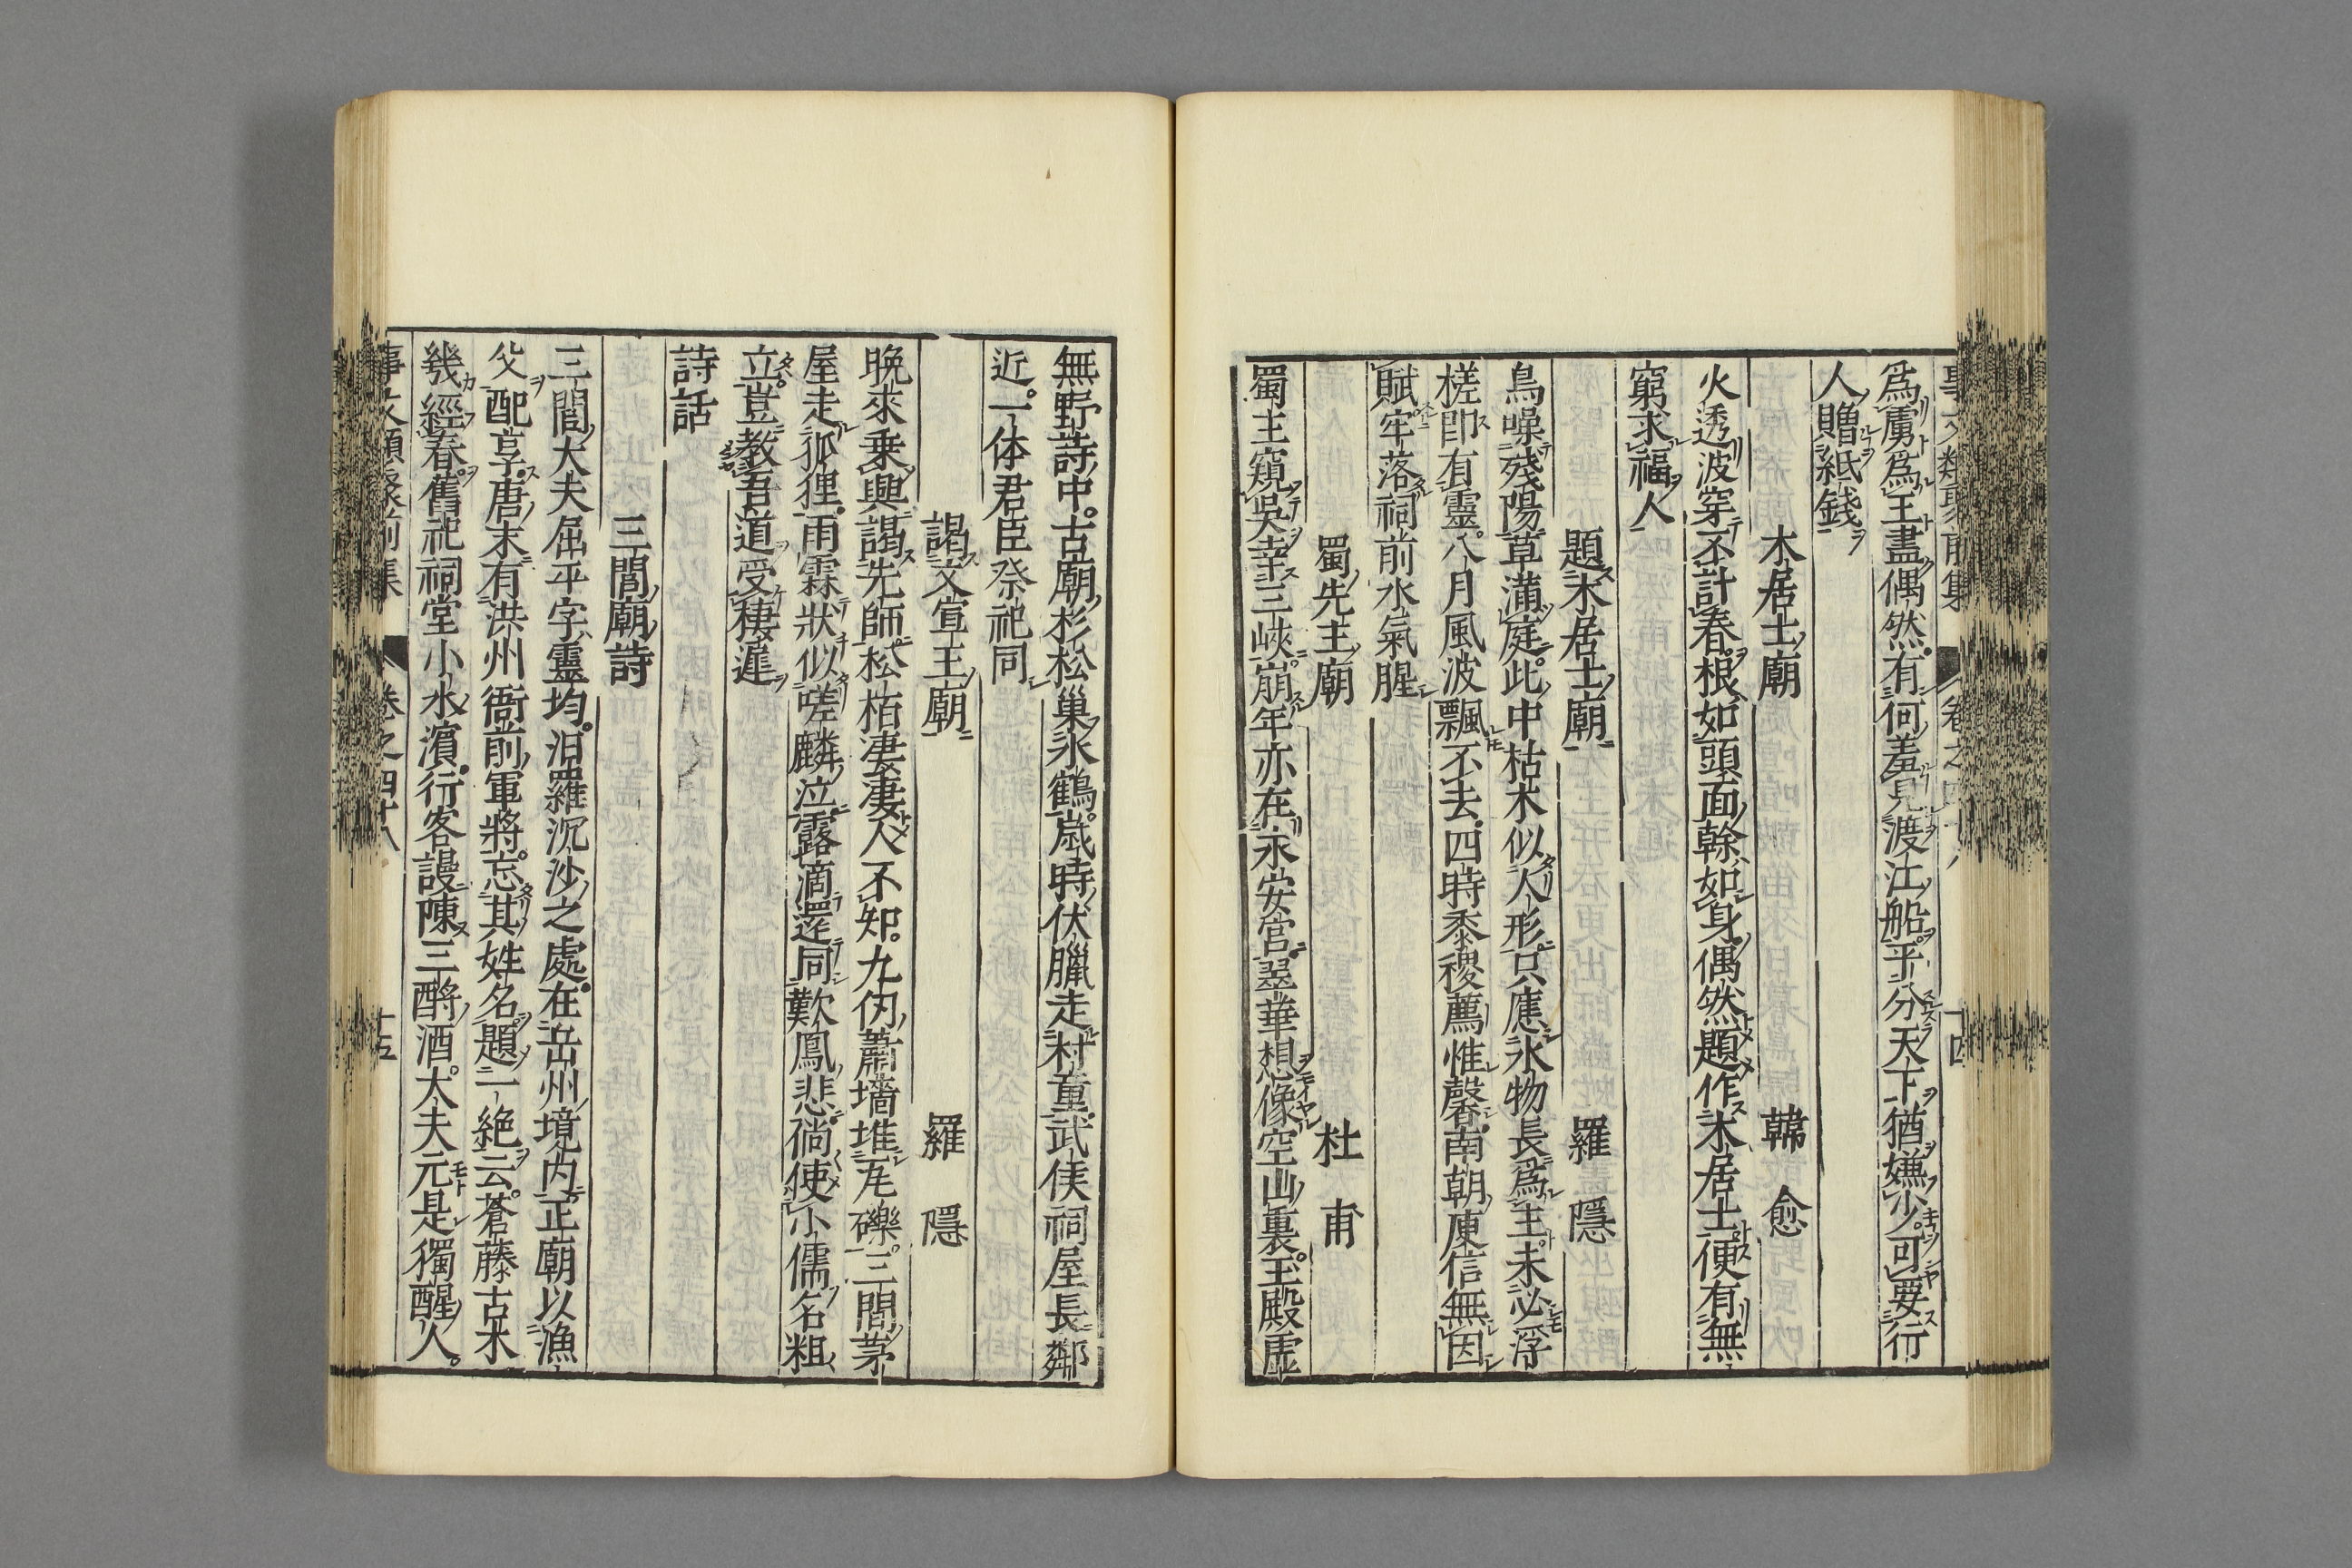 事文類聚前集 卷之四十八 十四
爲虜爲王盡偶然有何羞見渡江船乎分天下猶嫌少可要行
人贈紙錢
木居士廟 韓愈
火透波穿不計春根如頭面榦如身偶然題作木居士便有無
窮求福人
題木居士廟 羅隱
鳥噪殘陽草滿庭此中枯木似人形只應水物長爲主未必浮
槎即有靈八月風波飄不去四時黍稷薦惟馨南朝庾信無因
賦牢落祠前水氣腥
蜀先主廟 杜甫
蜀主窺吳幸三峽崩年亦在永安宮翠華想像空山裏玉殿虛
無野詩中古廟杉松巢水鶴歲時伏臘走村童武侯祠屋長鄰
近一体君臣祭祀同
謁文宣王廟 羅隱
晩來乗興謁先師松栢凄凄人不知九仞蕭墻堆瓦礫三間茅
屋走狐狸雨霖狀似嗟麟泣露滴還同歎鳳悲徜使小儒名粗
立豈教吾道受棲遲
詩話
三閭廟詩
三閭大夫屈平字靈均汨羅沉沙之處在岳州境内正廟以漁
父配享唐末有洪州衙前軍將忘其姓名題一絶云蒼藤古木
幾經春舊祀祠堂小水濱行客謾陳三酹酒大夫元是獨醒人
事文類聚前集 卷之四十八 十五